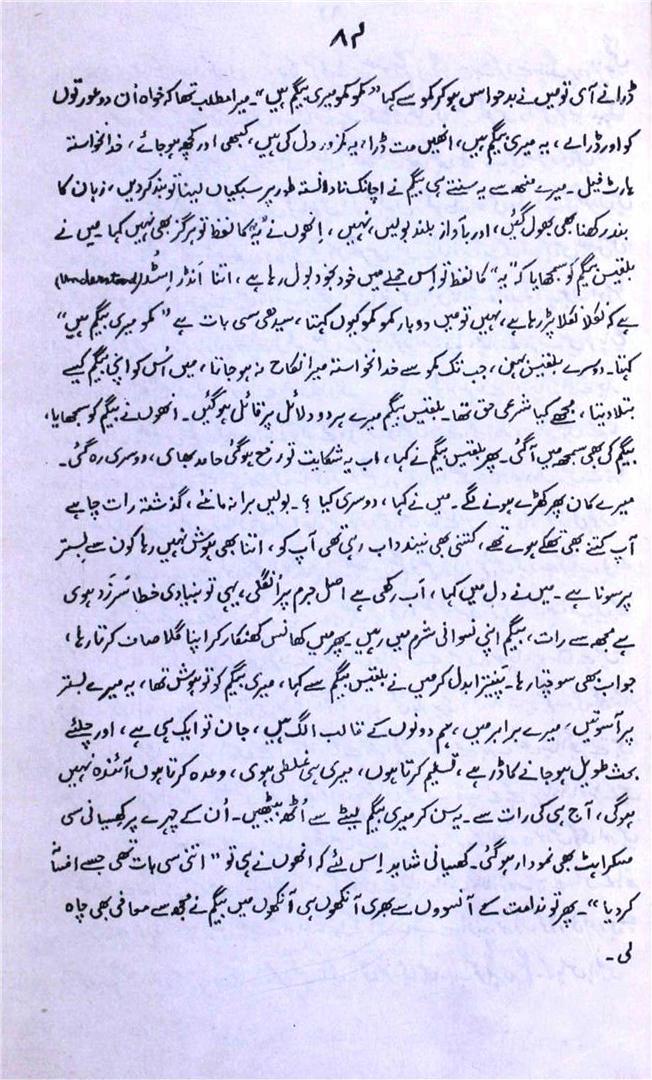 ۸۲
ڈرانے آئی تو میں نے بدحواس ہو کر ککو سے کہا ”ککو ککو میری بیگم ہیں“۔ میرا مطلب تھا کہ خواہ اُن دو عورتوں
کو اور ڈرالے، یہ میری بیگم ہیں، انھیں مت ڈرا، یہ کمزور دل کی ہیں، کبھی اور کچھ ہو جائے، خدانخواستہ
ہارٹ فیل۔ میرے منھ سے یہ سنتے ہی بیگم نے اچانک نادانستہ طور پر سسکیاں لینا تو بند کر دیں، زبان کا
بند رکھنا بھی بھول گئیں، اور بآواز بلند بولیں، نہیں، انھوں نے ”یہ“ کا لفظ تو ہرگز بھی نہیں کہا۔ میں نے
بلقیس بیگم کو سمجھایا کہ ”یہ“ کا لفظ تو اِس جملے میں خود بخود بول رہا ہے، اتنا اَنڈر اسٹُڈ (understood)
ہے کہ اُبلا اُبلا پڑ رہا ہے، نہیں تو میں دوبار ککو ککو کیوں کہتا، سیدھی سی بات ہے ”ککو میری بیگم ہیں“
کہتا۔ دوسرے بلقیس بہن، جب تک ککو سے خدانخواستہ میرا نکاح نہ ہو جاتا، میں اُس کو اپنی بیگم کیسے
بتلا دیتا، مجھے کیا شرعی حق تھا۔ بلقیس بیگم میرے ہر دو دلائل پر قائل ہو گئیں۔ انھوں نے بیگم کو سمجھایا،
بیگم کی بھی سمجھ میں آ گئی۔ پھر بلقیس بیگم نے کہا، اب یہ شکایت تو رفع ہو گئی حامد بھائی، دوسری رہ گئی۔
میرے کان پھر کھڑے ہونے لگے۔ میں نے کہا، دوسری کیا ؟۔ بولیں برا نہ مانئے، گذشتہ رات چاہے
آپ کتنے بھی تھکے ہوے تھے، کتنی بھی نیند داب رہی تھی آپ کو، اتنا بھی ہوش نہیں رہا کون سے بستر
پر سونا ہے۔ میں نے دل میں کہا، اَب رکھی ہے اصل جرم پر اُنگلی، یہی تو بنیادی خطا سَرزَد ہوی
ہے مجھ سے رات، بیگم اپنی نسوانی شرم میں رہیں۔ پھر میں کھانس کھنکار کر اپنا گلا صاف کرتا رہا،
جواب بھی سوچتا رہا۔ پینترا بدل کر میں نے بلقیس بیگم سے کہا، میری بیگم کو تو ہوش تھا، یہ میرے بستر
پر آ سوتیں، میرے برابر میں، ہم دونوں کے قالب الگ ہیں، جان تو ایک ہی ہے، اور چلئے
بحث طویل ہو جانے کا ڈر ہے، تسلیم کرتا ہوں، میری ہی غلطی ہوی، وعدہ کرتا ہوں آئندہ نہیں
ہوگی، آج ہی کی رات سے۔ یہ سن کر میری بیگم لیٹے سے اُٹھ بیٹھیں۔ اُن کے چہرے پر کھسیانی سی
مسکراہٹ بھی نمودار ہو گئی۔ کھسیانی شاید اِس لئے کہ انھوں نے ہی تو ” اتنی سی بات تھی جسے افسانہ
کر دیا “۔ پھر تو ندامت کے آنسووں سے بھری آنکھوں ہی آنکھوں میں بیگم نے مجھ سے معافی بھی چاہ
لی۔